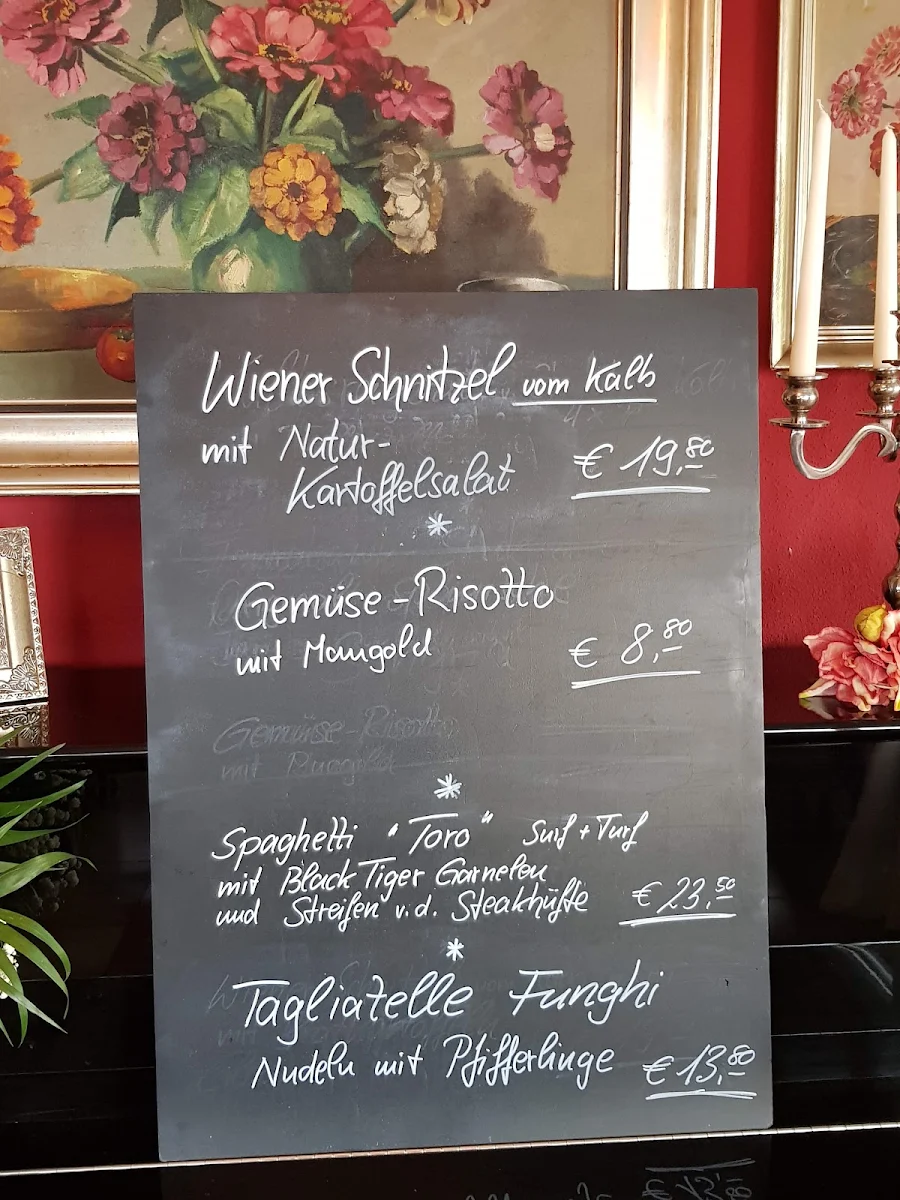 Wiener Schnitzel vom Kalb
mit Natur-
Kartoffelsalat € 19,80
*
Gemüse-Risotto
mit Mangold € 8,80
Gemüse-Risotto
*
Spaghetti "Toro" Surf + Turf
mit Black Tiger Garnelen
und Streifen v.d. Steakhüfte € 23,50
*
Tagliatelle Funghi
Nudeln mit Pfifferlinge € 13,80